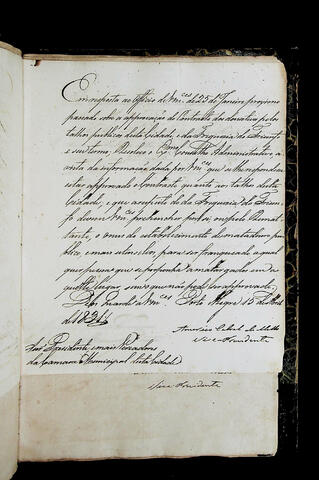 Em resposta ao Officio de V.mces de 25 de Janeiro proximo
passado sobre a approvação do Contracto dos donativos pelos
talhos publicos desta Cidade, e da Freguezia do Triunfo
e seu termo, Resolveo o Ex.mo Conselho Administrativo, a
vista da informação dada por V.mces que se lhe respondesse
estar approvado o Contracto quanto aos talhos desta
Cidade, e que a respeito do da Freguezia do Triun-
fo devem V.mces
tante, o onus do estabelecimento de matadouro pu-
blico, e mais utensilios, para ser franqueado a qual
quer pessoa que se proponha a matar gados em a
quelle lugar, sem o que não pode ser approvado.
Deos Guarde a V.mces Porto Alegre 15 de
de 1831
Americo Cabral de Mello
Vice Presidente
Snr.es Presidente e mais Vereadores
da Camara Municipal desta Cidade
Vice Presidente